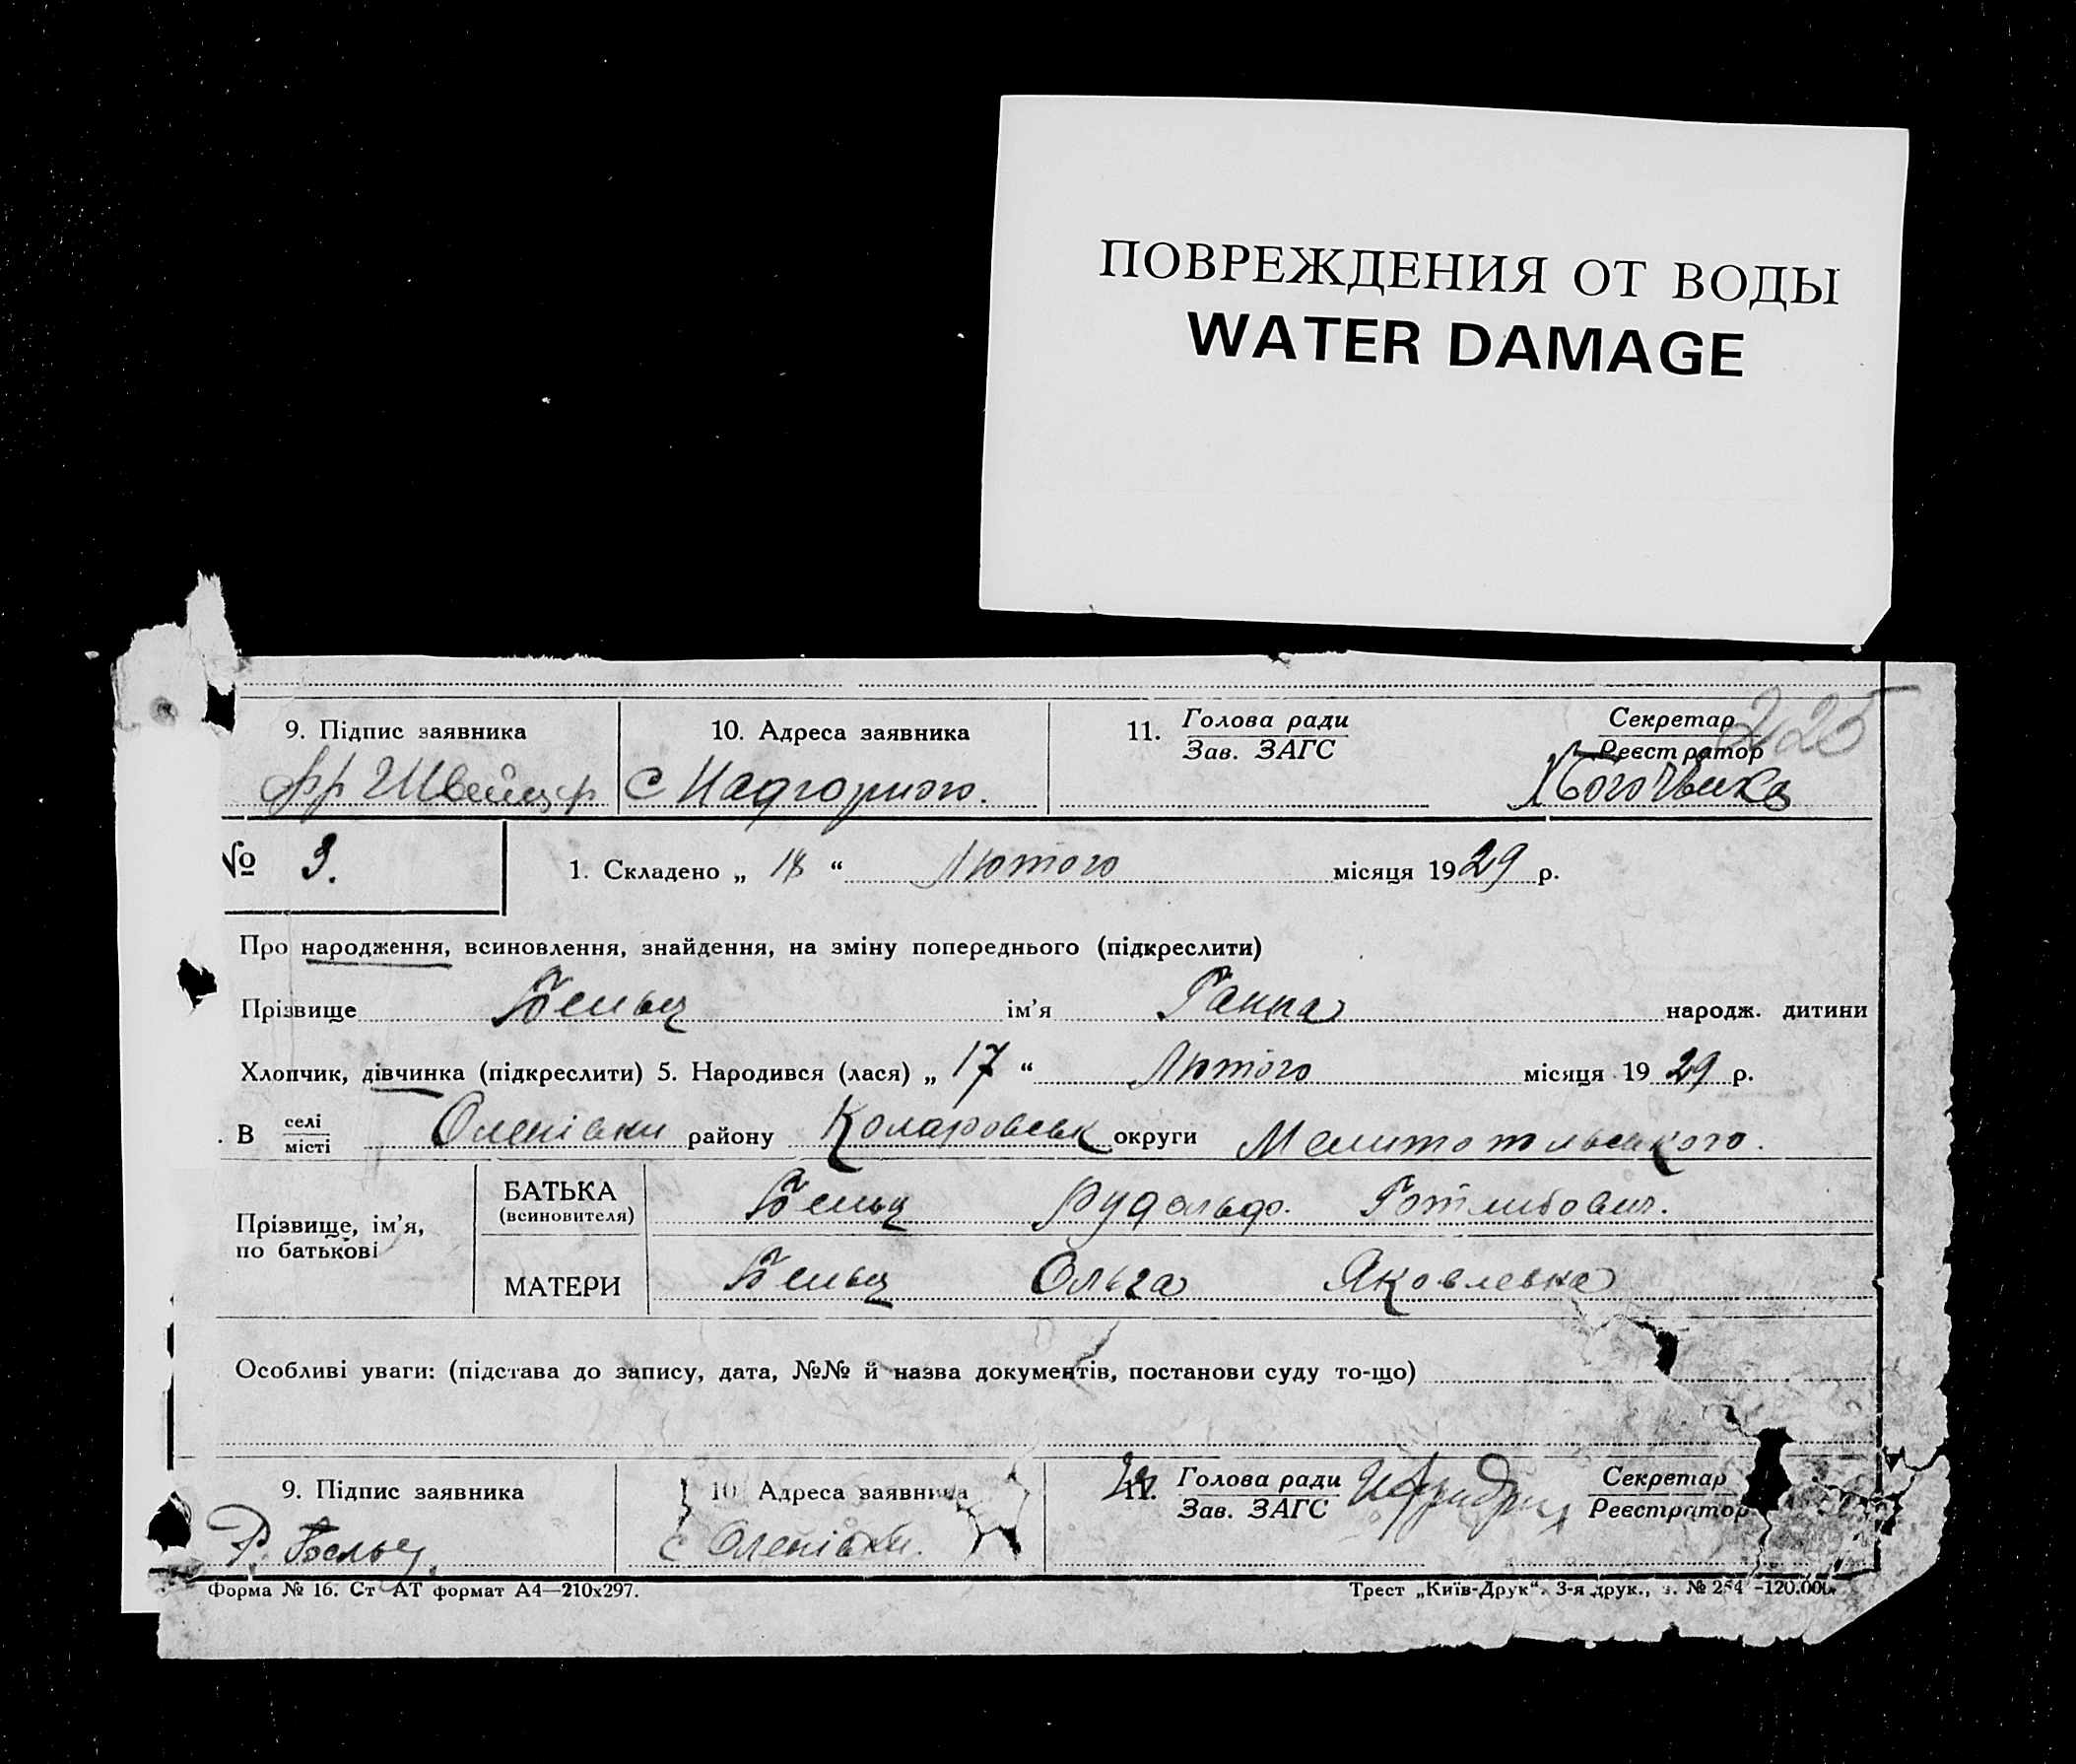 ПОВРЕЖДЕНИЯ ОТ ВОДЫ
WATER DAMAGE
225
9. Підпис заявника 10. Адреса заявника 11. Голова ради Секретар
Зав. ЗАГС Реєстратор
Фр Швейцер с Надгорного.
№ 3. 1. Складено „ 18 “ Лютого місяця 1929 р.
Про народження, всиновлення, знайдення, на зміну попереднього (підкреслити)
Прізвище Бельц ім'я Ганна народж. дитини
Хлопчик, дівчинка (підкреслити) 5. Народився (лася) „ 17 “ Лютого місяця 1929 р.
В селі Оленівки району Коларовськ округи Мелитопильського.
місті
Прізвище, ім'я, по батькові
БАТЬКА (всиновителя) Бельц Рудольф. Готлибович.
МАТЕРИ Бельц Ольга Яковлевна
Особливі уваги: (підстава до запису, дата, №№ й назва документів, постанови суду то-що)
9. Підпис заявника 10 Адреса заявника 11. Голова ради Секретар
Зав. ЗАГС Реєстратор
Р. Бельц. с Оленівки.
Форма № 16. Ст АТ формат А4—210x297. Трест „Київ-Друк“. 3-я друк., з. № 254 -120.000.